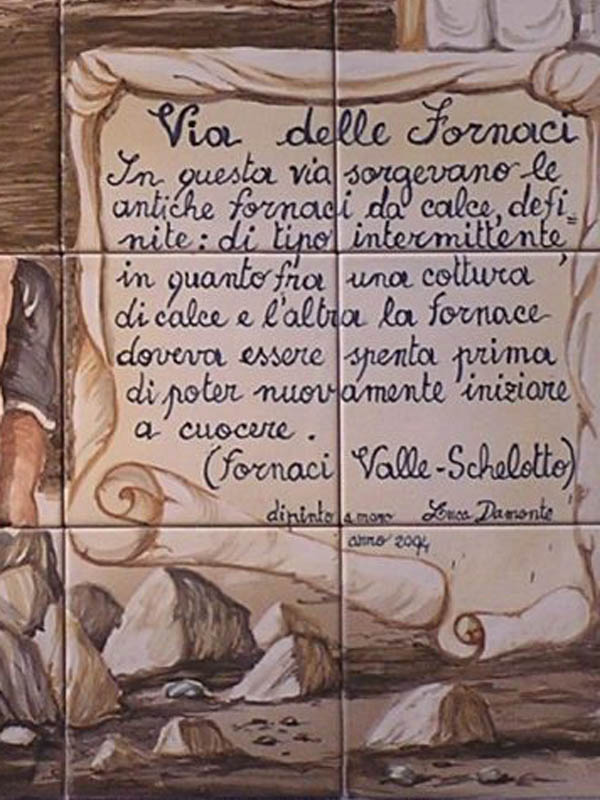 Via delle Fornaci
In questa via sorgevano le
antiche fornaci da calce, defi=
nite: di tipo intermittente,
in quanto fra una cottura
di calce e l'altra la fornace
doveva essere spenta prima
di poter nuovamente iniziare
a cuocere.
(Fornaci Valle-Schelotto)
dipinto a mano Luca Damonte
anno 2004